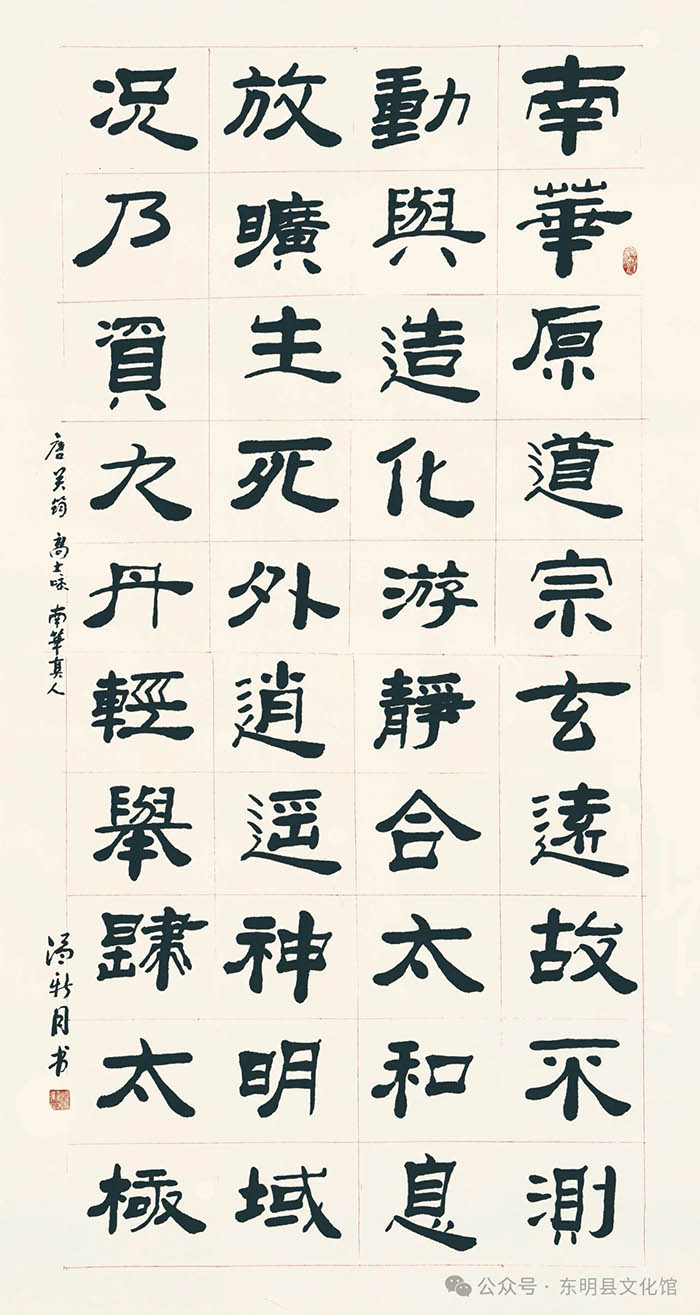 南華原道宗玄遠故不測
動與造化游靜合太和息
放曠生死外逍遥神明域
況乃資九丹輕舉歸太極
唐 吴筠 高士咏 南華真人
温新月书
公众号 · 东明县文化馆